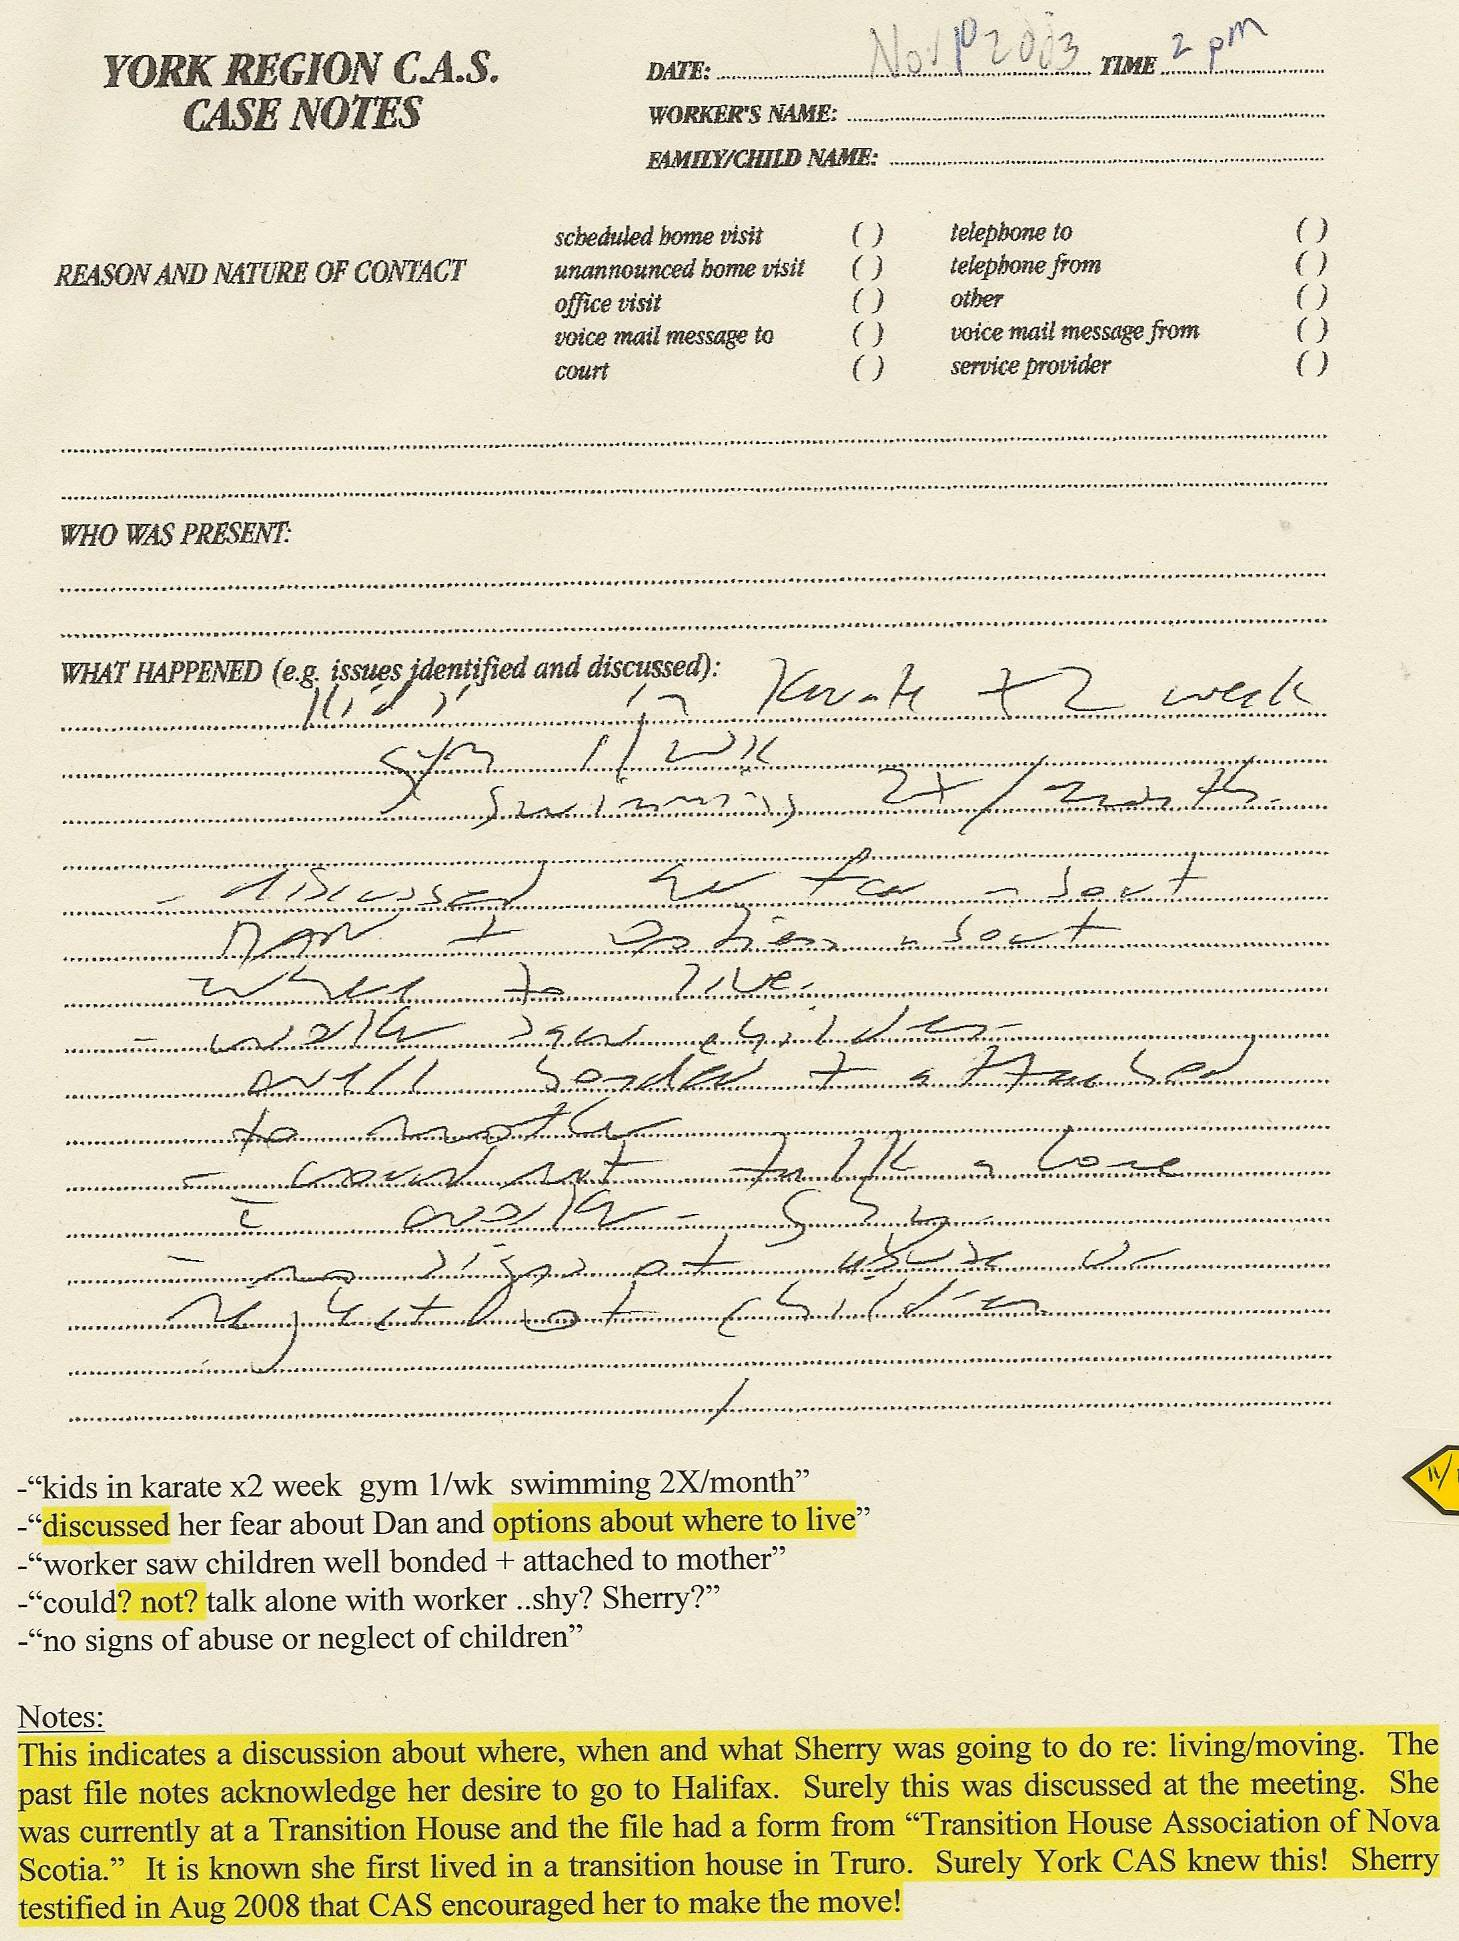 YORK REGION C.A.S.
CASE NOTES
DATE: Nov 2003 TIME 2 pm
WORKER'S NAME:
FAMILY/CHILD NAME:
REASON AND NATURE OF CONTACT
scheduled home visit ( ) telephone to ( )
unannounced home visit ( ) telephone from ( )
office visit ( ) other ( )
voice mail message to ( ) voice mail message from ( )
court ( ) service provider ( )
WHO WAS PRESENT:
WHAT HAPPENED (e.g. issues identified and discussed):
Kids in Karate x2 week
gym 1/wk
swimming 2x/month.
- discussed her fear about
DAN + options about
where to live.
- worker saw children
well bonded + attached
to mother
- could not talk alone
c̄ worker - shy.
- no signs of abuse or
neglect of children
-“kids in karate x2 week  gym 1/wk  swimming 2X/month”
-“discussed her fear about Dan and options about where to live”
-“worker saw children well bonded + attached to mother”
-“could? not? talk alone with worker ..shy? Sherry?”
-“no signs of abuse or neglect of children”
11/
Notes:
This indicates a discussion about where, when and what Sherry was going to do re: living/moving.  The
past file notes acknowledge her desire to go to Halifax.  Surely this was discussed at the meeting.  She
was currently at a Transition House and the file had a form from “Transition House Association of Nova
Scotia.”  It is known she first lived in a transition house in Truro.  Surely York CAS knew this!  Sherry
testified in Aug 2008 that CAS encouraged her to make the move!